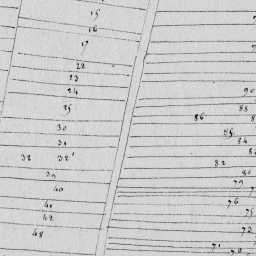 15
16
17
22
23
24
25
30
31
32 32'
39
40
41
42
48
90
88
86
85
84
82
80
79
76
75
72
71
70